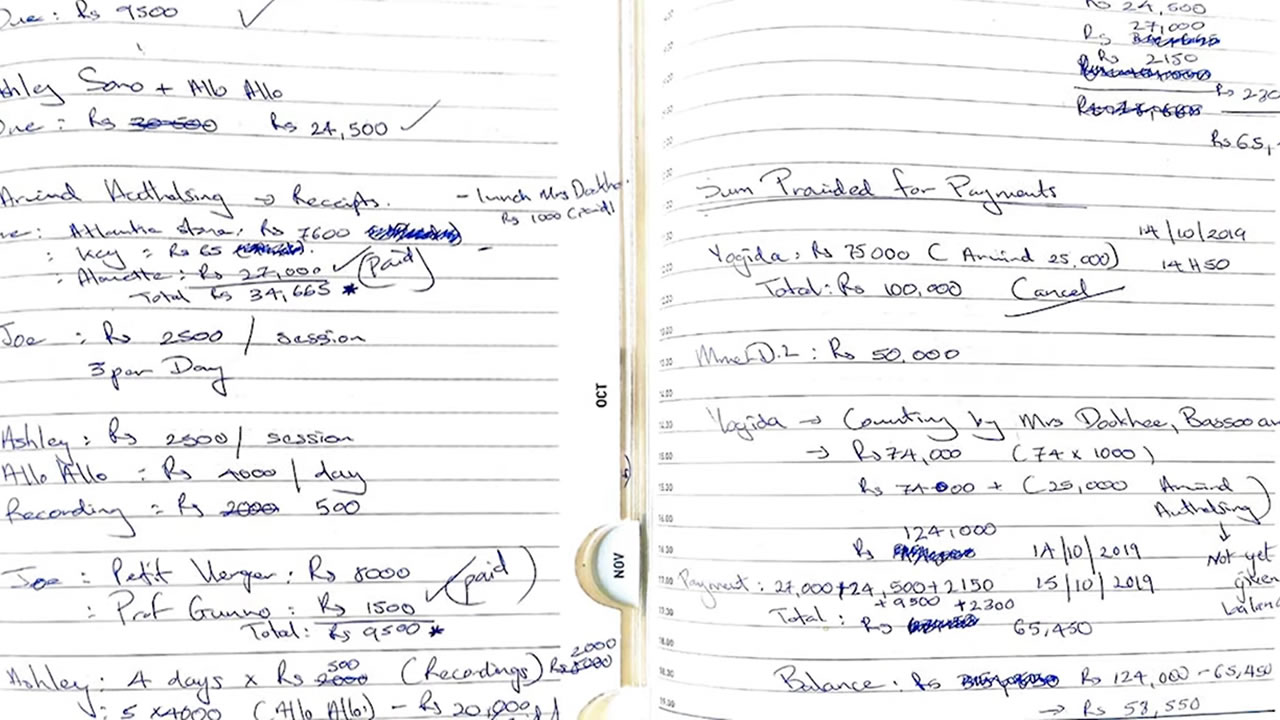 Due: Rs 9500 ✓
Ashley Sono + Allo Allo
Due: Rs 30500 Rs 24,500 ✓
→ Receipts.
- lunch Mrs Dookhe
Rs 1000 (paid)
Rs 7600
: Key = Rs 65
: Alouette: Rs 27,000 ✓ (paid)
Total Rs 34,665 *
Joe : Rs 2500 / session
3 per Day
Ashley: Rs 2500 / session
Allo Allo = Rs 4000 / day
Recording = Rs 2000 500
Joe : Petit Verger: Rs 8000 ✓ (paid)
: Prof Gunno : Rs 1500
Total: Rs 9500 *
Ashley: 4 days x Rs 2000 500 (Recordings) Rs 2000
: 5 x 4000 (Allo Allo) - Rs 20,000
OCT
NOV
Rs 24,500
Rs 27,000
Rs 2150
Rs 230
Rs 65,
Sum Praided for Payments
14/10/2019
Yogida: Rs 75000 (Arwind 25,000) 14H50
Total: Rs 100,000 Cancel
Rs 50,000
Yogida → Counting by Mrs Dookhee, Bassoo an
→ Rs 74,000 (74 x 1000)
Rs 74000 + (25,000 Arwind
Authelsing)
↓
124,000
Rs 14/10/2019 Not yet
given
Payment: 27,000+24,500+2150 15/10/2019
+9500 +2300
Total: Rs 65,450
Balance: Rs Rs 124,000 - 65,450
→ Rs 53,550